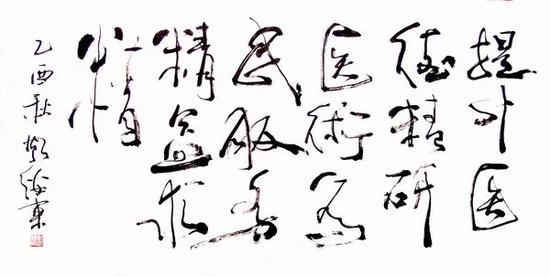 提升医
德精研
医術为
民服务
精益求
精
乙酉秋